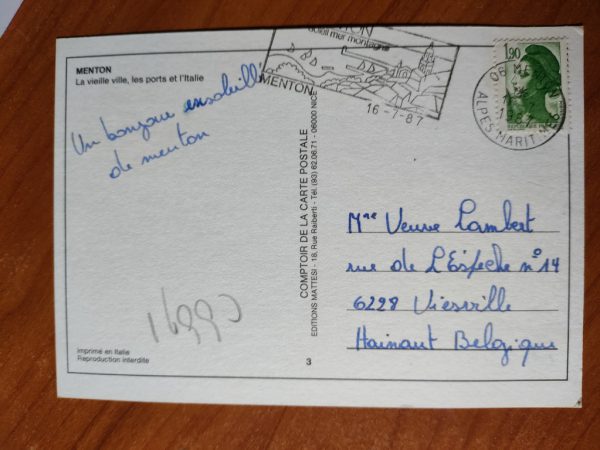 MENTON
La vieille ville, les ports et l'Italie
Un bonjour ensoleillé
de menton
Imprimé en Italie
Reproduction interdite
COMPTOIR DE LA CARTE POSTALE
EDITIONS MATTESI - 18, Rue Raiberti - Tél. (93) 62.06.71 - 06000 NICE
3
soleil mer montagne
MENTON
16-7-87
1,90
06
ALPES-MARIT.
Mme Veuve Lambert
rue de L'Espeche n°14
6228 Viesville
Hainaut Belgique